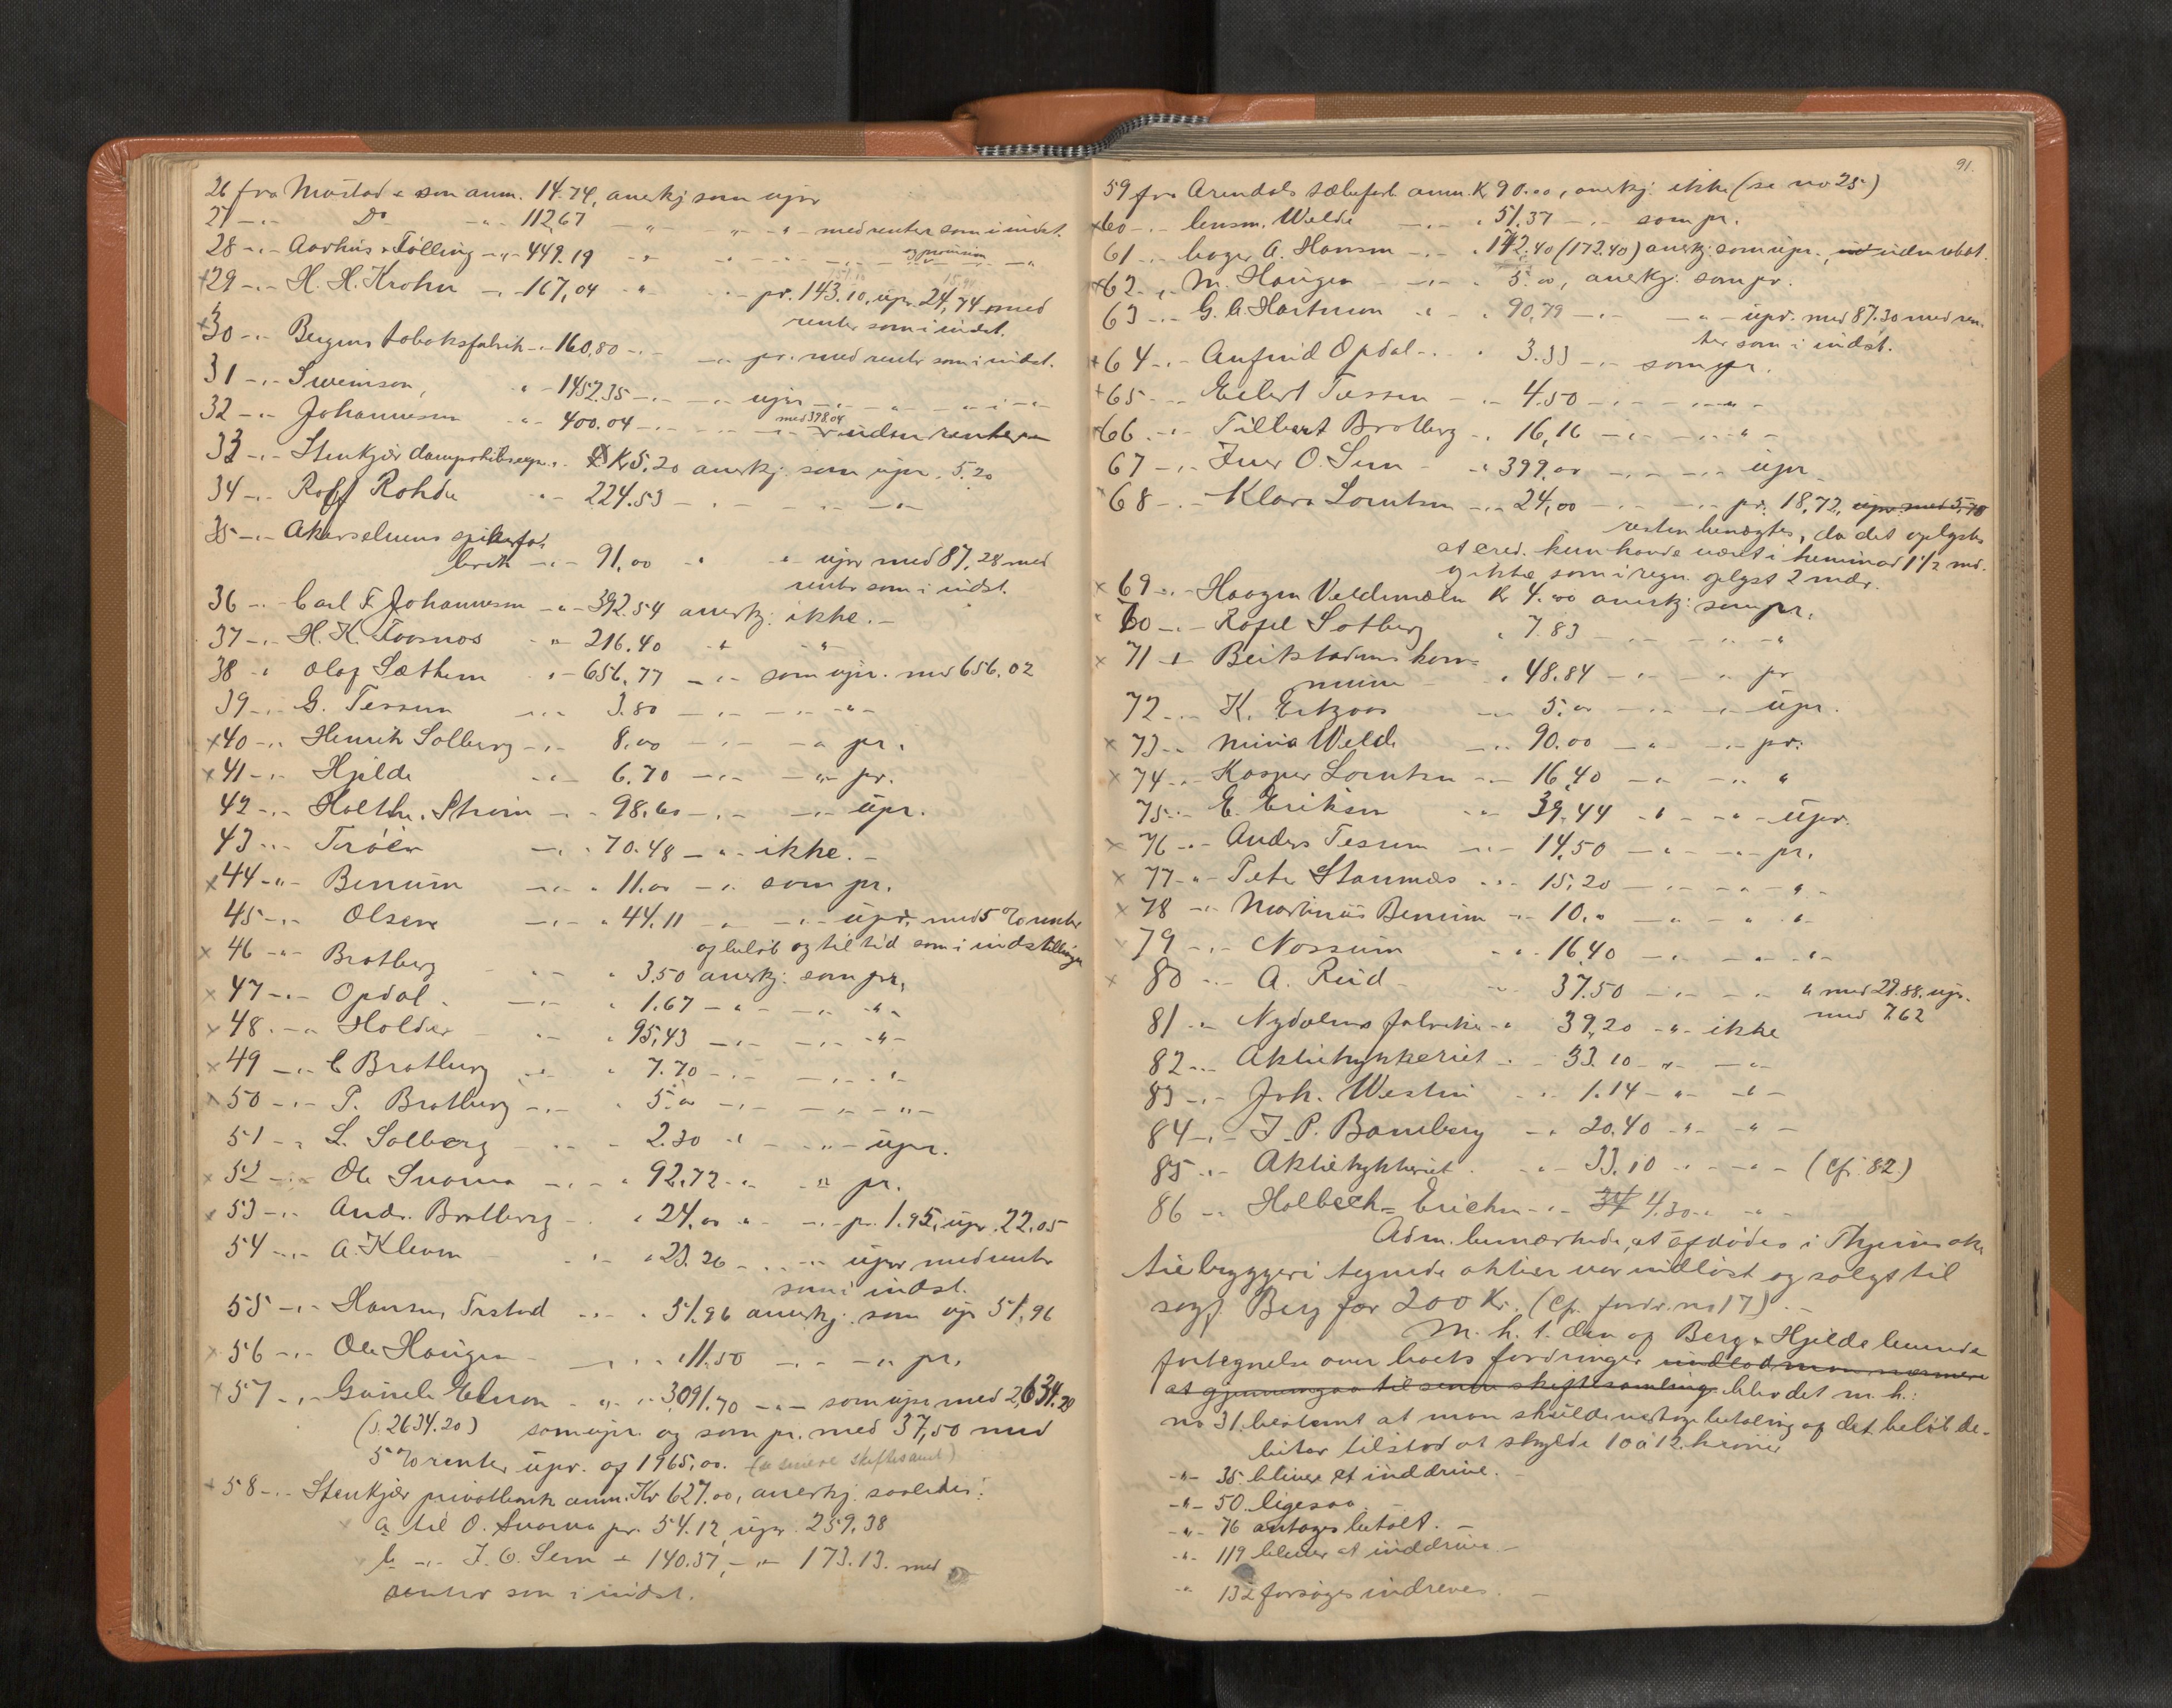 26 fra Mustad & søn anm. 14.74, anerkj som upr
27 -"- Do -"- 112.67 -"- " -"- med renter som i indst.
28 -"- Aarhus & Følling -"- 449.19 -"- -"- og provision -"-
+29 -"- H. H. Krohn -"- 167,04 " -"- pr. 143.10, upr. 24,74 med
renter som i indst.
+30 -"- Bergens tobaksfabrik -"- 160,80 -"- -"- pr. med renter som i indst.
31 -"- Sweinson, " - 1452.35 -"- -"- upr -"- -"- -"- i -"-
32 -"- Johannesen -"- 400.04 -"- -"- med 398.04 uden renter
33 -"- Stenkjær dampskibsexp. -"- Kr 5,20 anerkj. som upr. 5.20
34 -"- Rolf Rohde -"- 224.53 -"- -"- -"-
35 -"- Akerselvens spikerfa-
brik -"- 91,00 " " upr med 87,28 med
renter som i indst.
36 -"- Carl F. Johannesen -"- 392.54 anerkj. ikke. -
37 -"- H. K. Foosnæs -"- 216.40 " -"-
38 " Olaf Sæthem " - 656,77 -"- som upr. med 656,02
39 -"- G. Tessem -"- 3.80 -"- -"- -"-
x40 -"- Henrik Solberg -"- 8,00 -"- -" pr.
x41 -"- Hjelde -"- 6.70 -"- -"- pr.
42 -"- Holthe, Strøm -"- 98,60 -"- -"- upr.
43 -"- Trøen -"- " 70.48 -"- ikke. -
x44 -"- Benum -"- " 11.00 -"- som pr.
45 -"- Olsen -"- " 44.11 -"- -"- upr. med 5 % renter
af beløb og til tid som i indstillingen
x 46 -"- Bratberg -"- " 3.50 anerkj. som pr,
x 47 -"- Opdal. -"- " 1.67 -"- -"- -"-
x 48 -"- Holder -"- " 95,43 -"- -"- -"-
x 49 -"- C Bratberg -"- " 7.70 -"- -"- -"-
x 50 -"- P. Bratberg -"- " 5.00 -"- -"- -"-
51 -"- L. Solberg -"- - 2.30 -"- -"- upr.
x 52 -"- Ole Snorna -"- " 92.72 -"- -"- pr.
x 53 -"- Andr. Bratberg -"- " 24,00 " -"- pr. 1.95, upr. 22.05
54 -"- A. Kleven -"- " 23.26 -"- -"- upr med renter
som i indst.
55 -"- Hansen, Trstad -"- " 51.96 anerkj. som upr 51,96
x 56 -"- Ole Haugen -"- " 11.50 -"- -"- pr.
+57 -"- Elnon -"- " 3091.70 -"- som upr med 2634.20
(3.2634.20) som upr. og som pr. med 37,50 med
5 % renter upr. af 1965,00. (se senere skiftesaml)
+58 -"- Stenkjær privatbank anm. Kr 627.00, anerkj. saaledes:
a til O. Snorna pr. 54.12, upr. 259.38
b -"- I. O. Sem -"- 140.37, -"- 173.13. med
renter som i indst.
91.
59 fra Arendals sæbefabr. anm. Kr 90.00, anerkj. ikke (se no 25)
x60 -"- lensm. Welde -"- " 51.37 -"- som pr.
61 -"- bager A. Hansen -"- " 172.40 (172.40) anerkj. som upr., uden rabat.
x62 " M. Haugen -"- " 5.00, anerkj. som pr.
63 -"- G. C. Hartman " " 90,79 -"- -"- upr. med 87.30 med ren-
ter som i indst.
+64 -"- Anfind Opdal -"- " 3.33 -"- som pr.
+65 -"- Eilert Tessem -"- 4.50 -"- -"-
x66 -"- Tilbert Bratberg -"- 16,16 -"- -"- -
67 -"- Iver O. Sem -"- " 399.00 -"- -"- upr
x68 -"- Klara Lorntsen -"- 24,00 -"- pr. 18,72, upr. med 5,28
resten benægtes, da det oplystes
at cred. kun havde været i huset i 1 1/2 md.
og ikke som i regn. oplyst 2 mdr.
x 69 -"- Haagen Veldemælen Kr 4.00 anerkj. som pr.
70 -"- Rafel Solberg " 7.83 -"- -"- "
x 71 " Beitstadens kom-
mune - " 48.84 -"- " pr
72 -"- K. Eitzoos -"- 5.00 -"- -"- upr.
x 73 -"- Mina Welde -"- 90.00 -"- -"- pr.
x 74 -"- Kasper Lorntsen -"- 16,40 -"- -"- "
75 -"- E. Eriksen -"- 39,44 -"- -"- upr.
x 76 -"- Anders Tessem -"- 14,50 -"- -"- pr.
x 77 -"- Peter Stamnæs -"- 15,20 -"- -"- "
x 78 -"- Martinius Benum -"- 10.00 -"- -"- -"-
x 79 -"- Nossum -"- 16,40 -"- -"- -"-
x 80 -"- A. Reid -"- 37.50 -"- -"- " med 29.88, upr.
med 7.62
81 -"- Nydalens fabriker -"- 39,20 -"- ikke
82 -"- Aktietrykkeriet -"- 33.10 -"- -"-
83 -"- Joh. Westin -"- 1.14 -"- -"-
84 -"- J. P. Bamberg -"- 20,40 -"- -"-
85 -"- Aktietrykkeriet. -"- 33.10 -"- -"- (Cfr. 82.)
86 -"- Holbech = Erichsen -"- 34 4.30 -"- -"-
Adm. bemærkede, at afdødes i Thjems ak-
tiebryggeri tegnede aktier var indløst og solgt til
sagf. Berg for 200 Kr. (Cfr. fordr. no 17). -
M. h. t. den af Berg & Hjelde
fortegnelse over boets fordringer indlod man nærmere
at gjennemgaa til senere skiftesamling. blev det m. h.:
no 31. bestemt at man skulde vedtage betaling af det beløb de-
bitor tilstod at skylde 10 á 12 kroner
-"- 35 bliver at inddrive. -
-"- 50. ligesaa.
-"- 76 antages betalt. -
-"- 119 bliver at inddrive -
-"- 132 forsøges indrevet. -